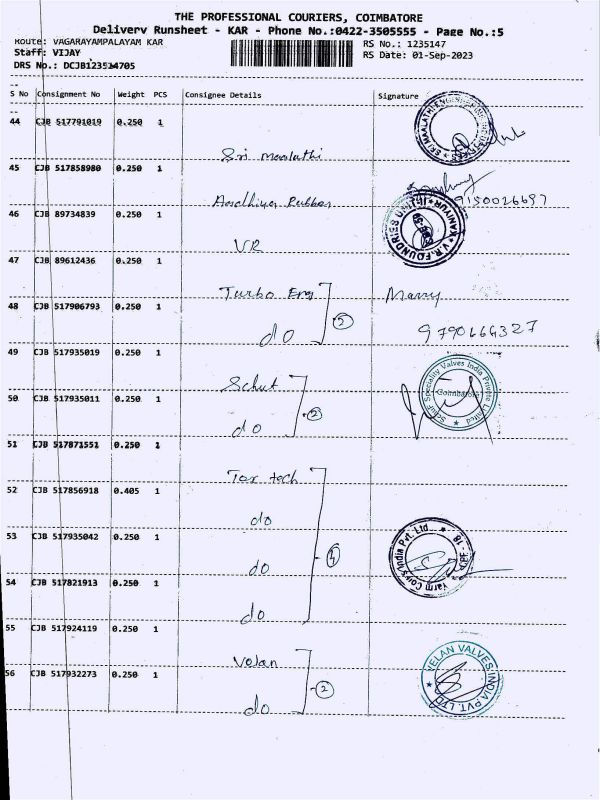 THE PROFESSIONAL COURIERS, COIMBATORE
Delivery Runsheet - KAR - Phone No.:0422-3505555 - Page No.:5
Route: VAGARAYAMPALAYAM KAR
RS No.: 1235147
Staff: VIJAY
RS Date: 01-Sep-2023
DRS No.: DCJB123514705
S No Consignment No Weight PCS Consignee Details Signature
44 CJB 517791019 0.250 1
Sri Maalathi
45 CJB 517858980 0.250 1
Aardhiya Rubber
9150026697
46 CJB 89734839 0.250 1
VR
V.R.FOUNDRIES UNIT-II
VANIYUR
47 CJB 89612436 0.250 1
Turbo Eng
Marry
48 CJB 517906793 0.250 1
do
2
9790666327
49 CJB 517935019 0.250 1
Schut
Schuf Speciality Valves India Private Limited
Coimbatore
50 CJB 517935011 0.250 1
do
2
51 CJB 517871551 0.250 1
Tex tech
52 CJB 517856918 0.405 1
do
53 CJB 517935042 0.250 1
do
4
54 CJB 517821913 0.250 1
do
55 CJB 517924119 0.250 1
Velan
VELAN VALVES INDIA PVT. LTD
56 CJB 517932273 0.250 1
do
2